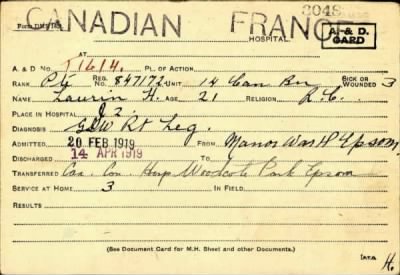 CANADIAN FRANCE
3048
Form DMS
HOSPITAL. A. & D. CARD
AT
A. & D No. T1614. PL. OF ACTION
RANK Pte REG. No. 847172 UNIT 14 Can Bn SICK OR WOUNDED 3
NAME Laurin H. AGE 21 RELIGION R.C.
PLACE IN HOSPITAL J 2.
DIAGNOSIS GSW Rt Leg.
ADMITTED 20 FEB 1919 FROM Manor War H Epsom
DISCHARGED 14 APR 1919 TO
TRANSFERRED Can. Con. Hosp Woodcote Park Epsom
SERVICE AT HOME 3 IN FIELD
RESULTS
(See Document Card for M.H. Sheet and other Documents.)
H.